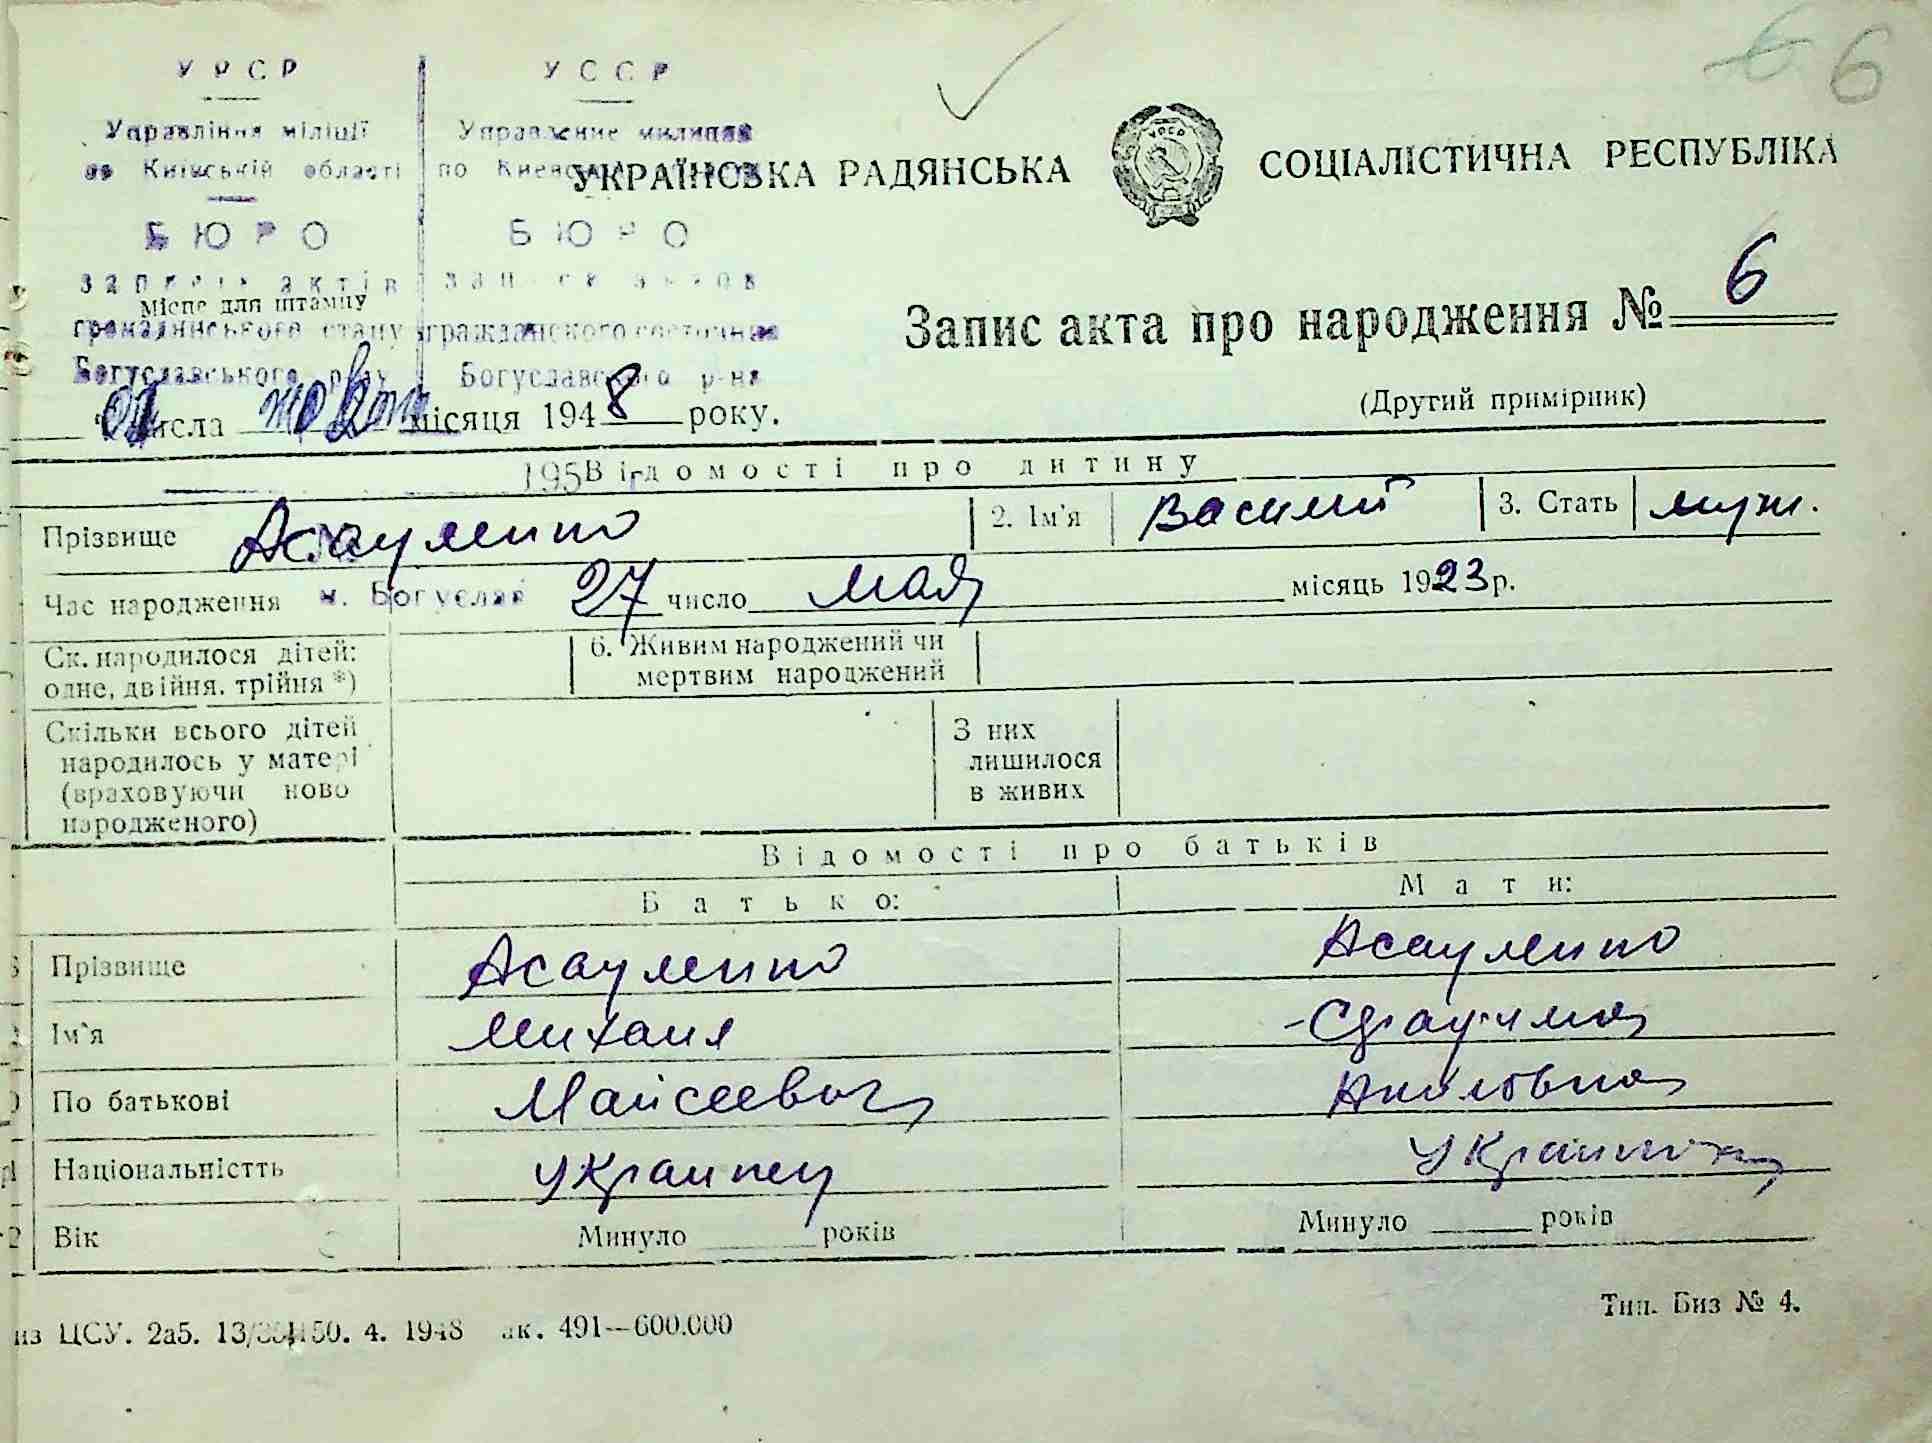 6 6
УРСР УССР
Управління міліції Управление милиции
по Київській області по Киевской
УКРАЇНСЬКА РАДЯНСЬКА СОЦІАЛІСТИЧНА РЕСПУБЛІКА
БЮРО БЮРО
записів актів записи актов
Місце для штампу
громадянського стану гражданского состояния
Запис акта про народження № 6
Богуславського р-ну Богуславского р-на
числа місяця 1948 року.
(Другий примірник)
195 г.
Відомості про дитину
Прізвище Асауленко 2. Ім'я Василий 3. Стать муж.
Час народження м. Богуслав 27 число мая місяць 1923 р.
Ск. народилося дітей: 6. Живим народжений чи
одне, двійня, трійня *) мертвим народжений
Скільки всього дітей З них
народилось у матері лишилося
(враховуючи ново в живих
народженого)
Відомості про батьків
Батько: Мати:
Прізвище Асауленко Асауленко
Ім'я Михаил
По батькові Майсеевич
Національністть Украинец Украинка
Вік Минуло років Минуло років
Тип. Биз № 4.
из ЦСУ. 2а5. 50. 4. 1948 ак. 491—600.000